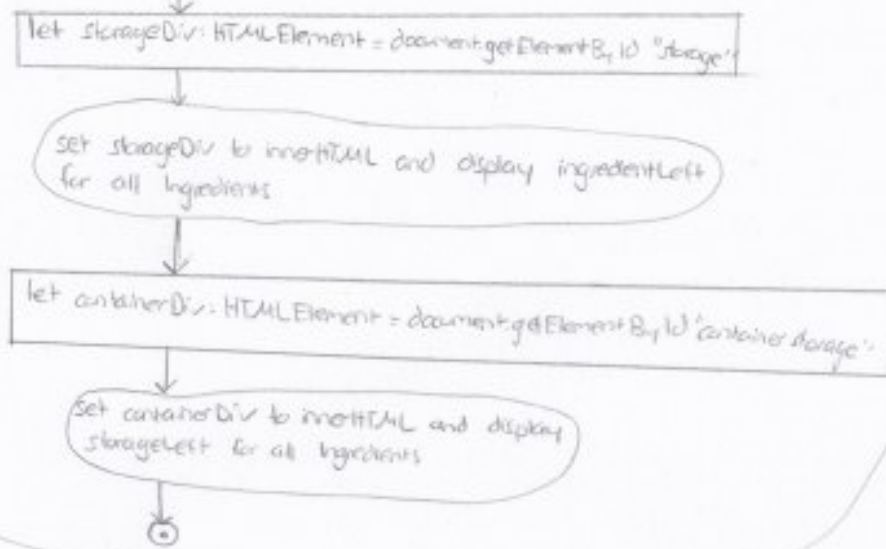 let storageDiv: HTMLElement = document.getElementById "storage"
set storageDiv to innerHTML and display ingredientLeft
for all Ingredients
let containerDiv: HTMLElement = document.getElementById "container storage"
set containerDiv to innerHTML and display
storageLeft for all Ingredients